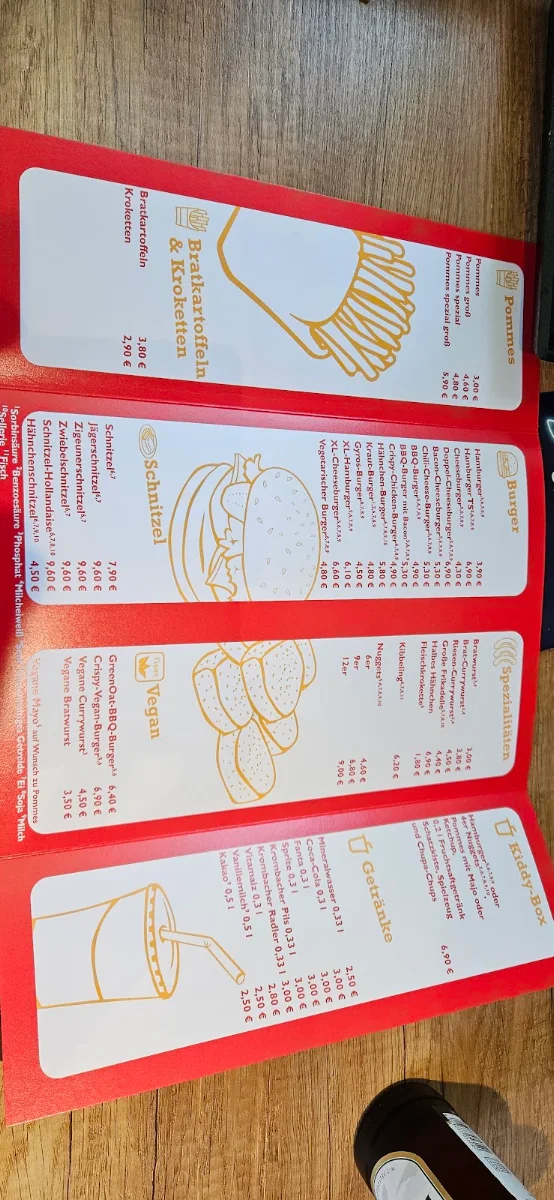 Pommes
Pommes 3,00 €
Pommes groß 4,60 €
Pommes spezial 4,80 €
Pommes spezial groß 5,90 €
Bratkartoffeln
& Kroketten
Bratkartoffeln 3,80 €
Kroketten 2,90 €
Burger
Hamburger 3,90 €
Hamburger TS 6,90 €
Cheeseburger 4,30 €
Doppel-Cheeseburger 6,90 €
Bacon-Cheeseburger 5,30 €
Chili-Cheese-Burger 5,30 €
BBQ-Burger 4,90 €
BBQ-Burger mit Bacon 5,30 €
Crispy-Chicken-Burger 4,90 €
Hähnchen-Burger 5,80 €
Kraut-Burger 4,80 €
Gyros-Burger 4,50 €
XL-Hamburger 6,10 €
XL-Cheeseburger 6,60 €
Vegetarischer Burger 4,80 €
Schnitzel
Schnitzel 7,90 €
Jägerschnitzel 9,60 €
Zigeunerschnitzel 9,60 €
Zwiebelschnitzel 9,60 €
Schnitzel-Hollandaise 9,60 €
Hähnchenschnitzel 4,50 €
Spezialitäten
Bratwurst 3,00 €
Brat-Currywurst 3,60 €
Riesen-Currywurst 4,50 €
Große Frikadelle 4,40 €
Halbes Hähnchen 6,90 €
Fleischkrokette 1,80 €
Kibbeling 6,20 €
Nuggets
6er 4,60 €
9er 6,80 €
12er 9,00 €
Vegan
GreenOat-BBQ-Burger 6,40 €
Crispy-Vegan-Burger 6,90 €
Vegane Currywurst 4,50 €
Vegane Bratwurst 3,50 €
Vegane Mayo auf Wunsch zu Pommes
Kiddy-Box
Hamburger oder
4er Nuggets,
Pommes mit Majo oder
Ketchup,
0,2 l Fruchtsaftgetränk
Schatzkiste, Spielzeug
und Chupa-Chups 6,90 €
Getränke
Mineralwasser 0,33 l 2,50 €
Coca-Cola 0,3 l 3,00 €
Fanta 0,3 l 3,00 €
Sprite 0,3 l 3,00 €
Krombacher Pils 0,33 l 3,00 €
Krombacher Radler 0,33 l 3,00 €
Vitamalz 0,3 l 2,80 €
Vanillemilch 0,5 l 2,50 €
Kakao 0,5 l 2,50 €
¹Sorbinsäure ²Benzoesäure ³Phosphat ⁴Milcheiweiß Getreide ⁷Ei ⁸Soja ⁹Milch
¹⁰Sellerie ¹¹Fisch